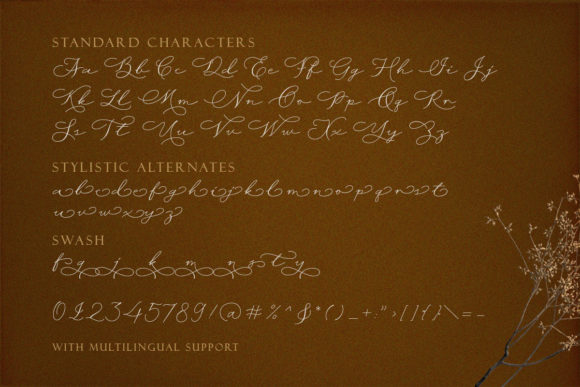 STANDARD CHARACTERS
Aa Bb Cc Dd Ee Ff Gg Hh Ii Jj
Kk Ll Mm Nn Oo Pp Qq Rr
Ss Tt Uu Vv Ww Xx Yy Zz
STYLISTIC ALTERNATES
a b c d e f g h i j k l m n o p q r s t
u v w x y z
SWASH
f g j k m n s t y
0123457891/@#%^&*()_+:">[]{}\=-
WITH MULTILINGUAL SUPPORT